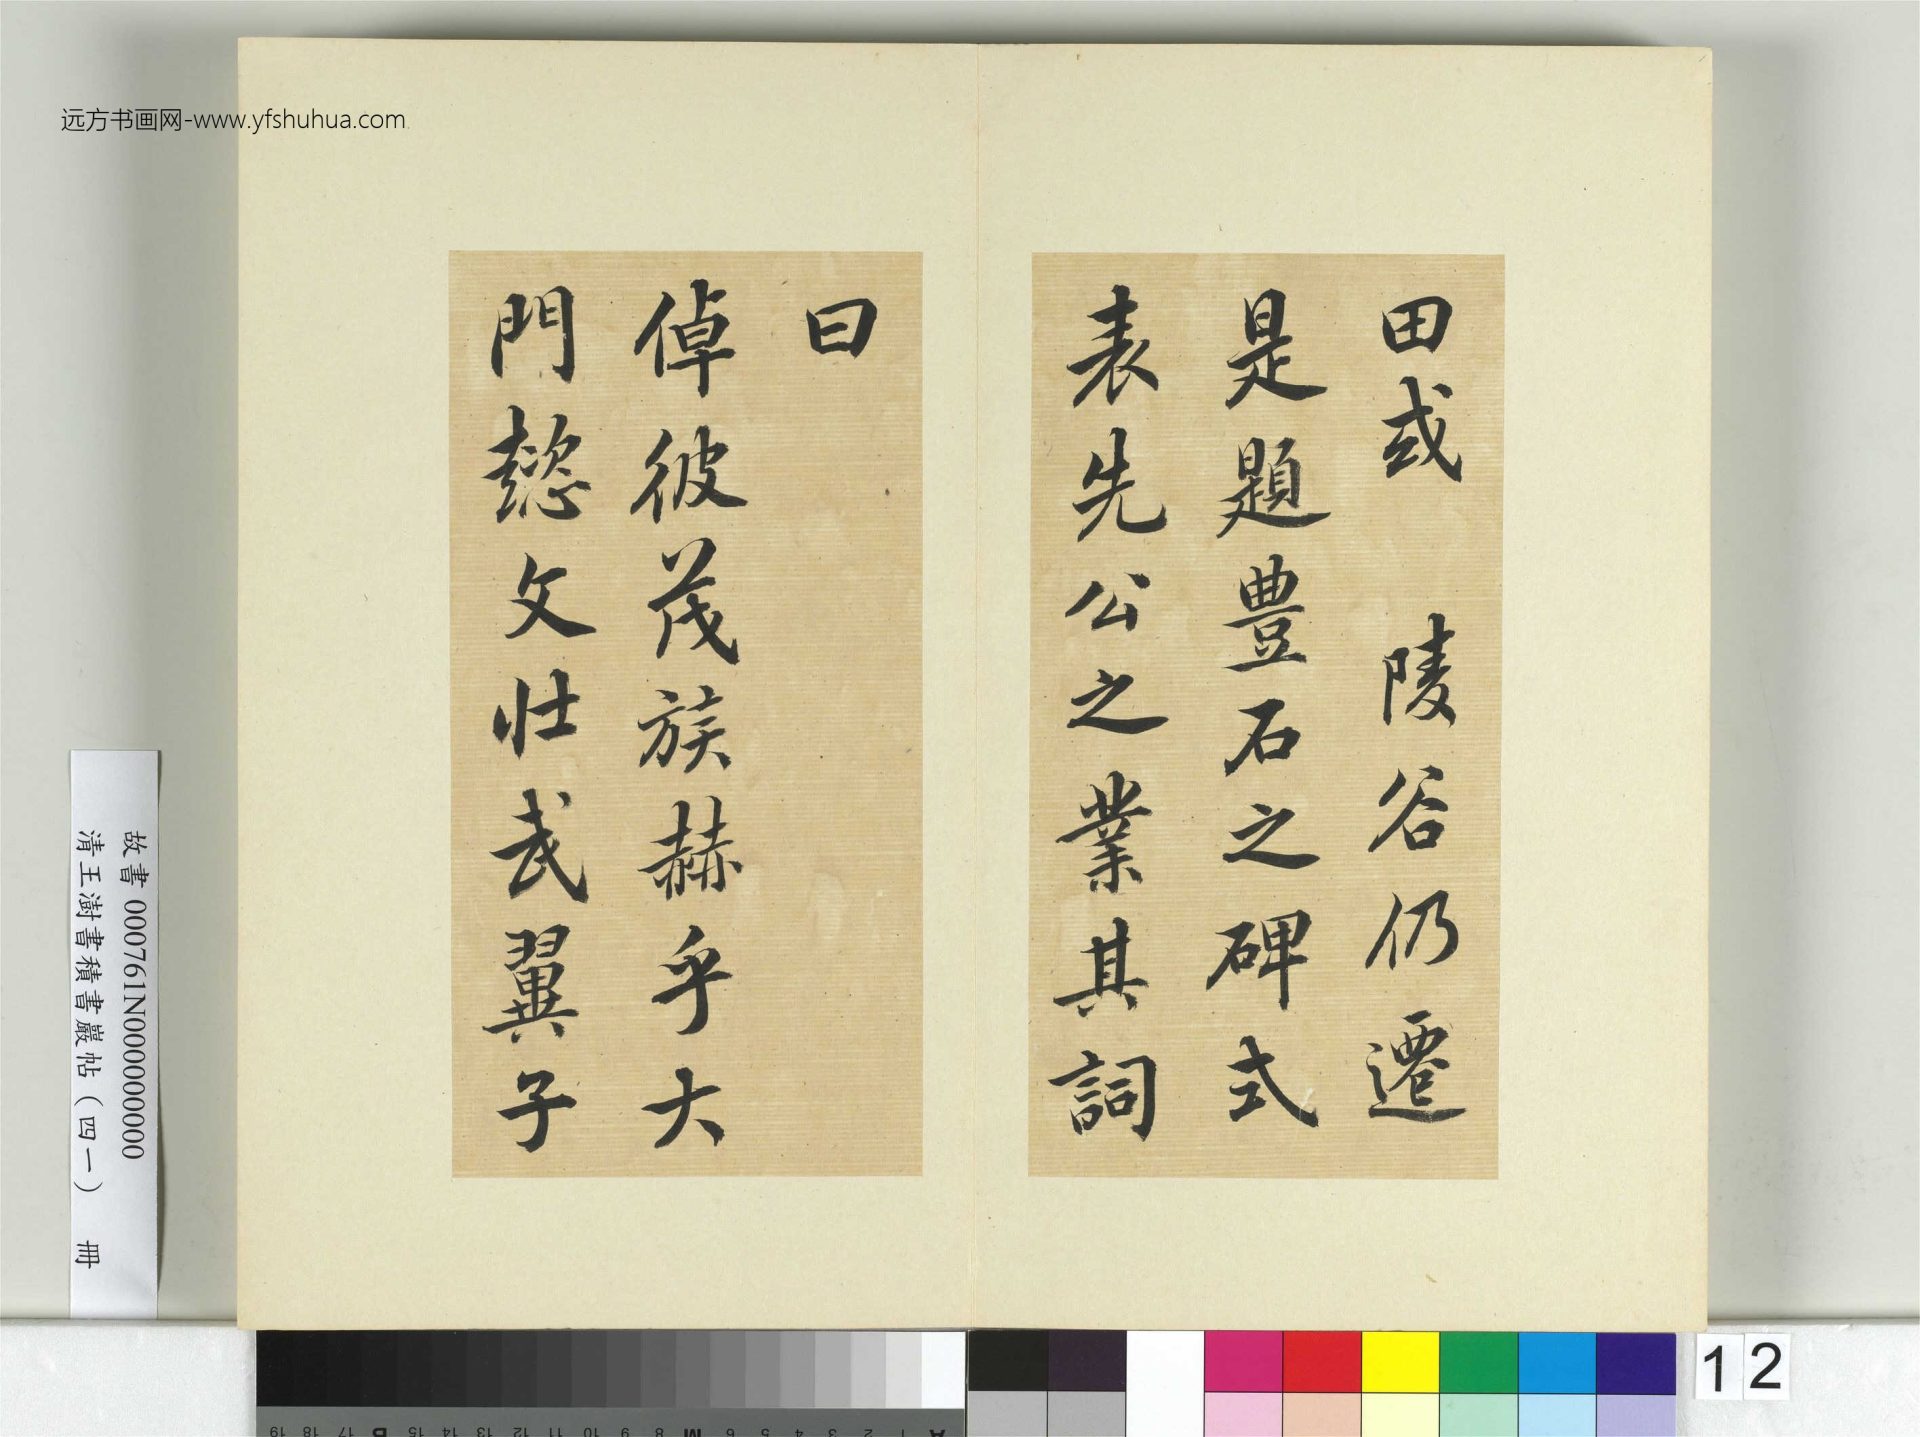 远方书画网-www.yfshuhua.com
田或 陵谷仍遷
是題豊石之碑式
表先公之業其詞
曰
倬彼茂族赫乎大
門懿文壮武翼子
故書 000761N000000000
清王澍書積書巖帖(四一) 冊
12